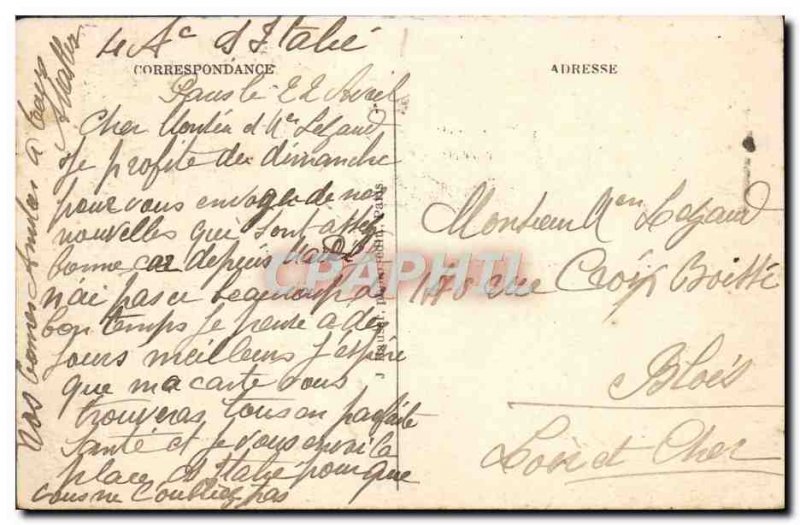 4 Ac d'Italie
CORRESPONDANCE
Paris le 22 Avril
Cher Monsieu et Mm Legaud
Je profite du dimanche
pour vous envoyer de nos
nouvelles qui sont assez
bonne car depuis Mardi
n'ai pas eu beaucoup de
bon temps je pense a des
jours meilleurs j'espère
que ma carte vous
trouveras tous en parfaite
santé et je vous envoi la
place d'Italie pour que
vous ne l'oubliez pas
Nos bonnes Amities a tous
ADRESSE
Monsieur Mm Legaud
rue Croix Boissé
Blois
Loir et Cher
CAPHTI